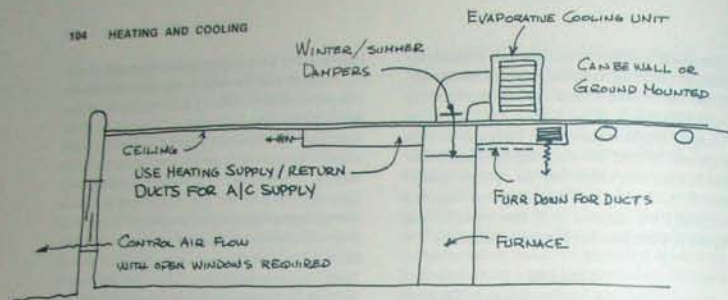 104 HEATING AND COOLING
EVAPORATIVE COOLING UNIT
WINTER/SUMMER
DAMPERS
CAN BE WALL OR
GROUND MOUNTED
CEILING
USE HEATING SUPPLY/RETURN
DUCTS FOR A/C SUPPLY
FURR DOWN FOR DUCTS
CONTROL AIR FLOW
WITH OPEN WINDOWS REQUIRED
FURNACE